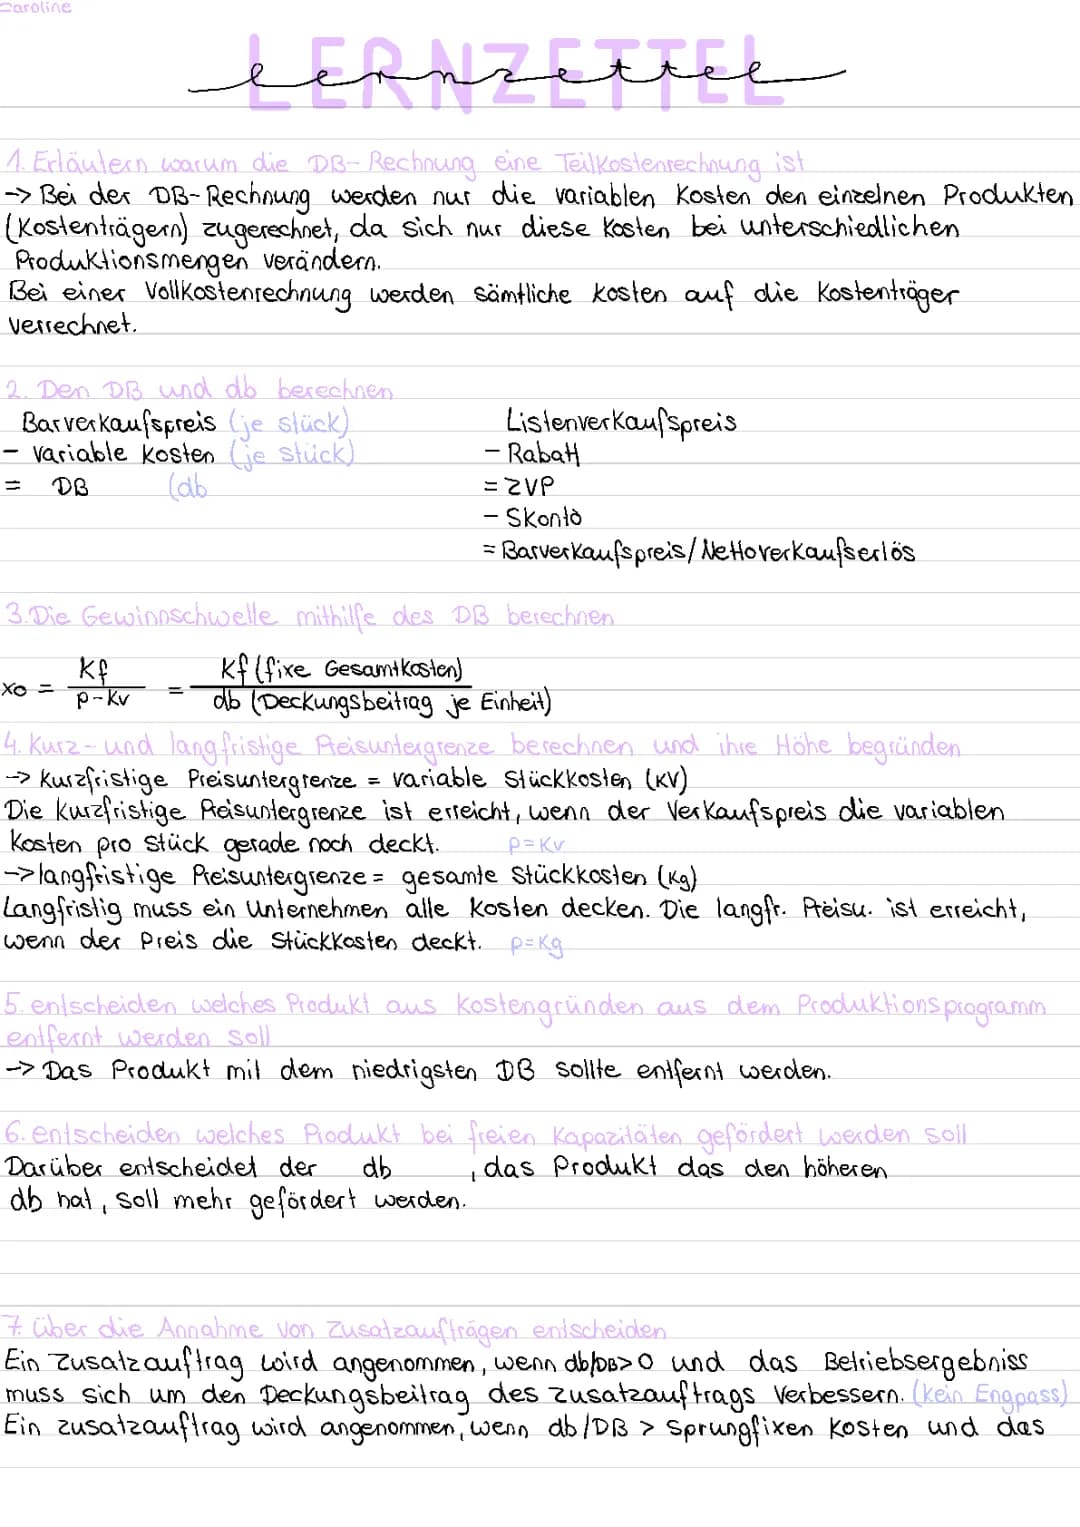 Caroline
LERNZETTEL
lernzettel
1. Erläutern warum die DB-Rechnung eine Teilkostenrechnung ist
-> Bei der DB-Rechnung werden nur die variablen Kosten den einzelnen Produkten
(Kostenträgern) zugerechnet, da sich nur diese Kosten bei unterschiedlichen
Produktionsmengen verändern.
Bei einer Vollkostenrechnung werden sämtliche Kosten auf die Kostenträger
verrechnet.
2. Den DB und db berechnen
Barverkaufspreis (je stück)
- variable Kosten (je stück)
= DB (db
Listenverkaufspreis
- Rabatt
= ZVP
- Skonto
= Barverkaufspreis/Nettoverkaufserlös
3. Die Gewinnschwelle mithilfe des DB berechnen
x0 = Kf / p-Kv = Kf (fixe Gesamtkosten) / db (Deckungsbeitrag je Einheit)
4. Kurz- und langfristige Preisuntergrenze berechnen und ihre Höhe begründen
-> Kurzfristige Preisuntergrenze = variable Stückkosten (KV)
Die kurzfristige Preisuntergrenze ist erreicht, wenn der Verkaufspreis die variablen
Kosten pro Stück gerade noch deckt. p=Kv
-> langfristige Preisuntergrenze = gesamte Stückkosten (Kg)
Langfristig muss ein Unternehmen alle Kosten decken. Die langfr. Preisu. ist erreicht,
wenn der Preis die Stückkosten deckt. p=Kg
5. entscheiden welches Produkt aus Kostengründen aus dem Produktionsprogramm
entfernt werden soll
-> Das Produkt mit dem niedrigsten DB sollte entfernt werden.
6. entscheiden welches Produkt bei freien Kapazitäten gefördert werden soll
Darüber entscheidet der db , das Produkt das den höheren
db hat, soll mehr gefördert werden.
7. über die Annahme von Zusatzaufträgen entscheiden
Ein Zusatzauftrag wird angenommen, wenn db/DB>0 und das Betriebsergebniss
muss sich um den Deckungsbeitrag des Zusatzauftrags verbessern. (kein Engpass)
Ein zusatzauftrag wird angenommen, wenn db/DB > Sprungfixen Kosten und das